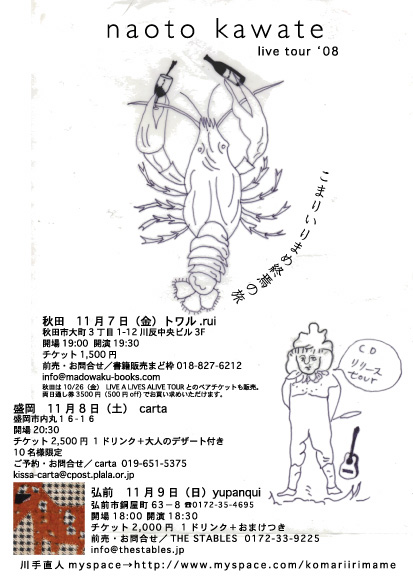 naoto kawate
live tour ‘08
こまりいりまめ終焉の旅
秋田　11月7日（金）トワル.rui
秋田市大町3丁目1-12川反中央ビル3F
開場19:00 開演19:30
チケット1,500円
前売・お問合せ／書籍販売まど枠 018-827-6212
info@madowaku-books.com
秋田は10/26（金） LIVE A LIVES ALIVE TOUR とのペアチケットも販売。
両日通し券3500円（500円off）でお買い求めいただけます。
CD
リリース
tour
盛岡　11月8日（土） carta
盛岡市内丸16-16
開場20:30
チケット2,500円 1ドリンク＋大人のデザート付き
10名様限定
ご予約・お問合せ／carta 019-651-5375
kissa-carta@cpost.plala.or.jp
弘前　11月9日（日）yupanqui
弘前市銅屋町63－8 ☎0172-35-4695
開場18:00 開演18:30
チケット2,000円 1ドリンク＋おまけつき
前売・お問合せ／THE STABLES 0172-33-9225
info@thestables.jp
川手直人myspace→http://www.myspace.com/komariirimame